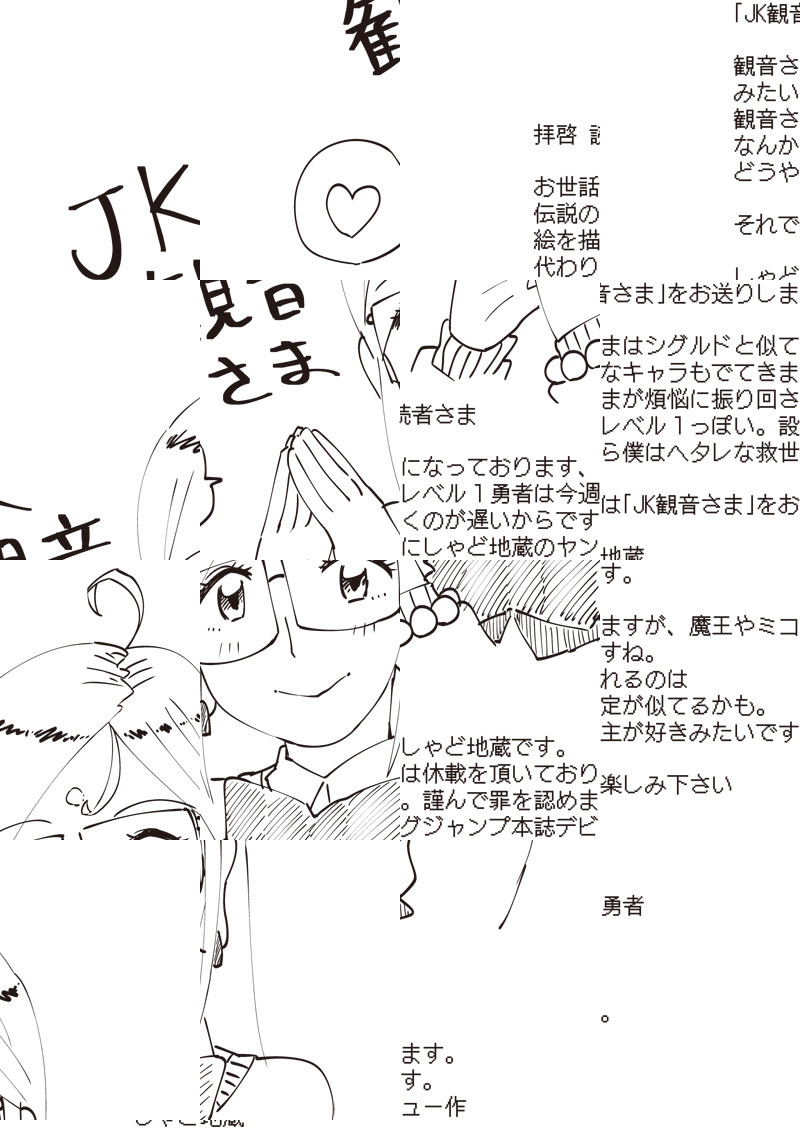 JK
拝啓
お世話
伝説の
絵を描
代わり
「JK観音
観音さ
みたい
観音さ
なんか
どうや
それで
しゃど
さま
読者さま
になっております、
レベル１勇者は今週
くのが遅いからです
にしゃど地蔵のヤン
音さま」をお送りしま
まはシグルドと似て
なキャラもでてきま
まが煩悩に振り回さ
レベル１っぽい。設
ら僕はヘタレな救世
は「JK観音さま」をお
地蔵
しゃど地蔵です。
は休載を頂いており
。謹んで罪を認めま
グジャンプ本誌デビ
す。
ますが、魔王やミコ
すね。
れるのは
定が似てるかも。
主が好きみたいです
楽しみ下さい
ます。
す。
ュー作
勇者
。